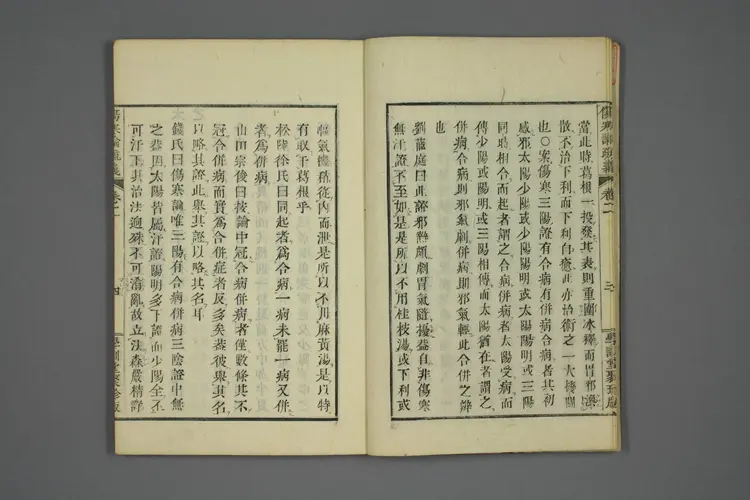 傷寒論疏義 卷二 三 學訓堂聚珍版
當此時葛根一投發其表則重圍冰釋而胃邪渙
散不治下利而下利自癒此亦治術之一大機關
也○案傷寒三陽證有合病有併病合病者其初
感邪太陽少陽或少陽陽明或太陽陽明或三陽
同時相合而起者謂之合病併病者太陽受病而
傳少陽或陽明或三陽相傳而太陽猶在者謂之
併病合病則邪氣劇併病則邪氣輕此合併之辨
也
劉蕺庭曰此證邪熱頗劇胃氣隨擾蓋自非傷寒
無汗證不至如是是所以不用桂枝湯或下利或
氣機稍從內而泄是所以不用麻黃湯是以特
有取于葛根乎
松陵徐氏曰同起者為合病一病未罷一病又併
者為併病
山田宗俊曰按論中冠合病併病者僅數條其不
冠合併病而實為合併症者反多矣葢彼舉其名
以略其證此舉其證以略其名耳
錢氏曰傷寒論唯三陽有合病併病三陰證中無
之葢因太陽皆屬汗證陽明多下證而少陽全不
可汗下其治法迥殊不可淆亂故立法森嚴精詳
傷寒論疏義 卷二 四 學訓堂聚珍版